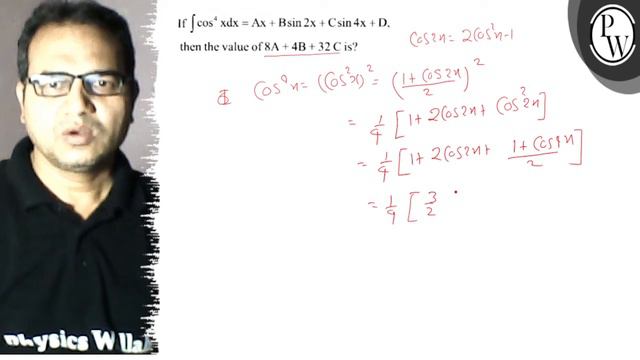 If ∫cos⁴ xdx = Ax + Bsin 2x + Csin 4x + D,
then the value of 8A + 4B + 32 C is?
Cos2x = 2Cos²x-1
Cos⁴x = (Cos²x)² = ((1+Cos2x)/2)²
= 1/4 [1+2Cos2x+ Cos²2x]
= 1/4 [1+2Cos2x+ (1+Cos4x)/2]
= 1/4 [3/2
PW
Physics Walla